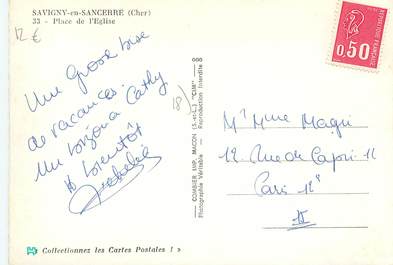 SAVIGNY-en-SANCERRE (Cher)
33 - Place de l'Église
12 €
Une grosse bise
de vacances.
Un bonjour à Cathy
A bientôt
18)
COMBIER IMP. MACON (S.-et-L.) "CIM"
Photographie Véritable - Reproduction Interdite
RÉPUBLIQUE FRANÇAISE
0,50
Mr Mme Magri
12 Rue de Capri 11
Paris 12e
Collectionnez les Cartes Postales ! »